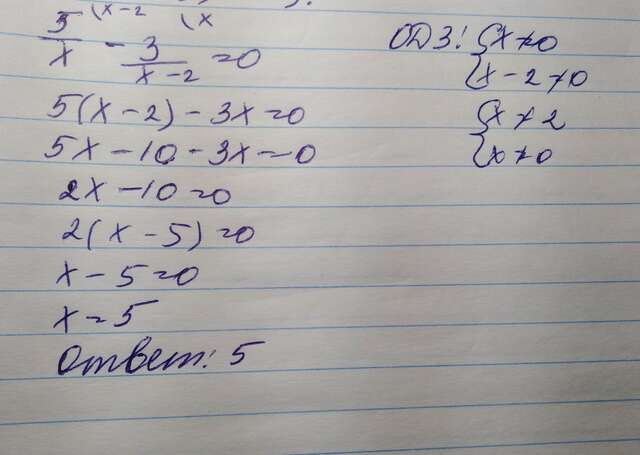 5/x (x-2 - 3/(x-2) (x = 0
5(x-2)-3x=0
5x-10-3x=0
2x-10=0
2(x-5)=0
x-5=0
x=5
Ответ: 5
ОДЗ: {x≠0
{x-2≠0
{x≠2
{x≠0